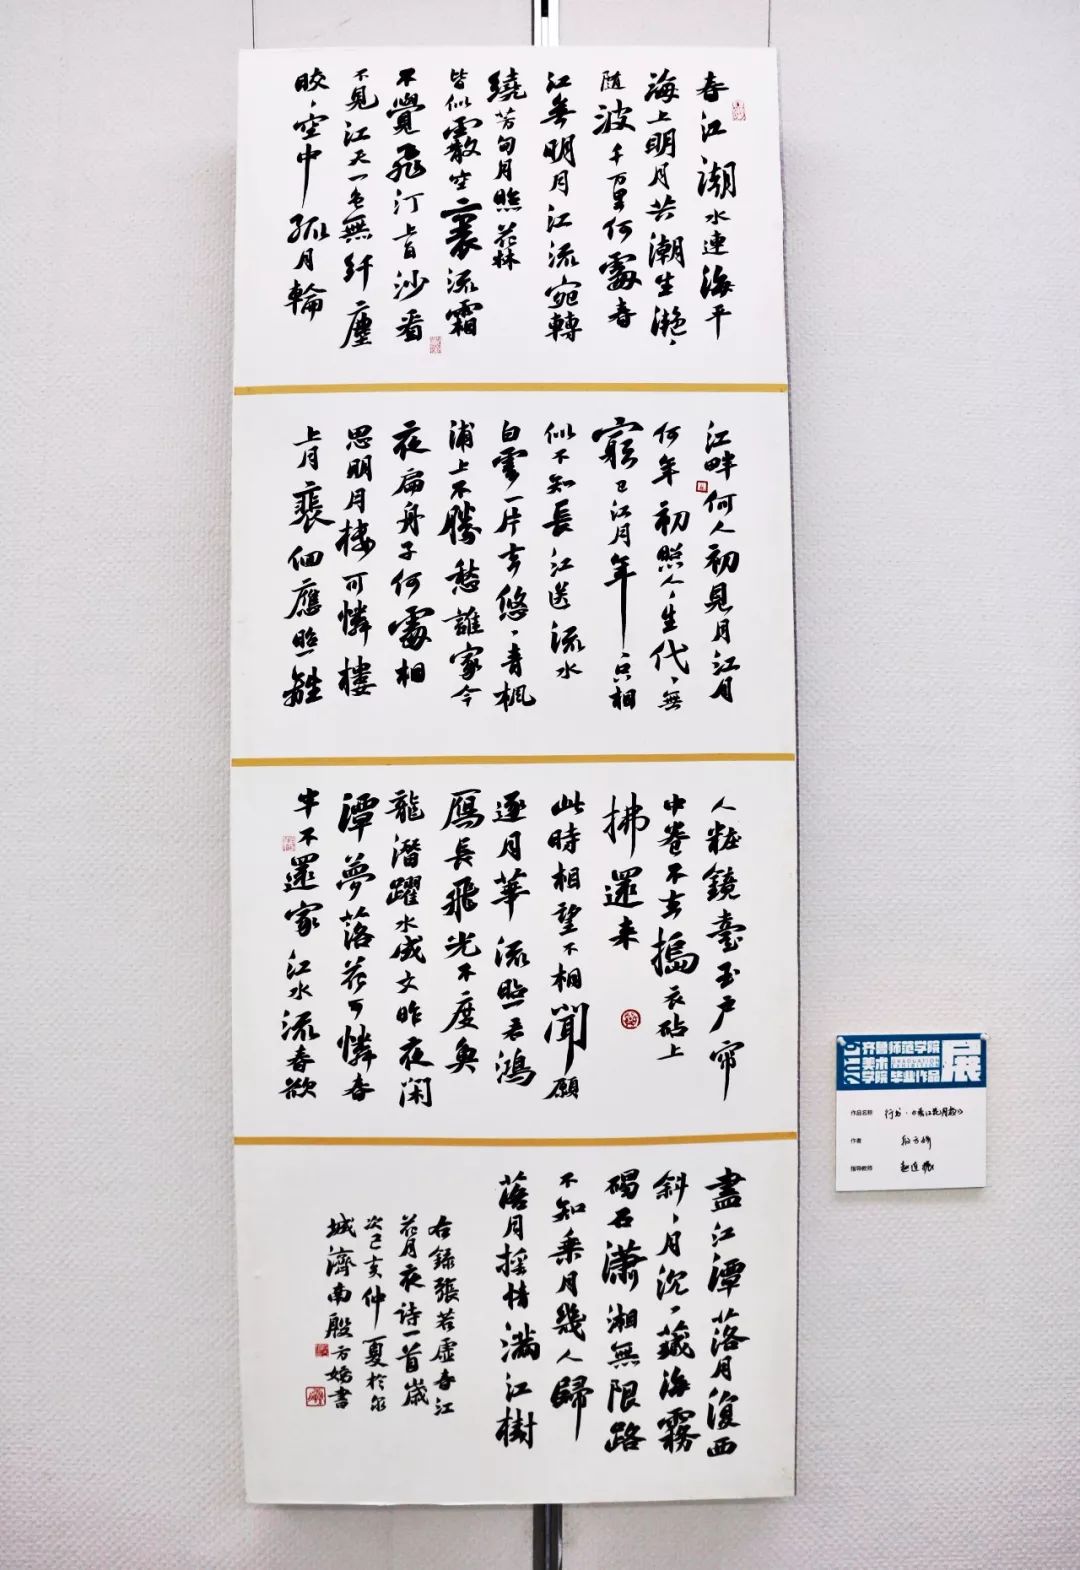 春江潮水連海平
海上明月共潮生灔、
随波千万里何處春
江無明月江流宛轉
繞芳甸月照花林
皆似霰空裏流霜
不覺飛汀上白沙看
不見江天一色無纤塵
皎、空中孤月輪
江畔何人初見月江月
何年初照人、生代、無
窮已江月年、只相
似不知長江送流水
白雲一片去悠、青楓
浦上不勝愁誰家今
夜扁舟子何處相
思明月樓可憐樓
上月裴佪應照離
人粧鏡臺玉户帘
中卷不去搗衣砧上
拂還来
此時相望不相聞願
逐月華流照君鴻
雁長飛光不度魚
龍潛躍水成文昨夜闲
潭夢落花可憐春
半不還家江水流春欲
盡江潭落月復西
斜、月沉、藏海霧
碣石潇湘無限路
不知乘月幾人歸
落月摇情满江樹
右錄張若虚春江
花月夜诗一首歲
次己亥仲夏於泉
城濟南殷方嬌書
2019 齐鲁师范学院
美术学院
GRADUATION EXHIBITION
毕业作品展
作品名称 行书·《春江花月夜》
作者
指导教师